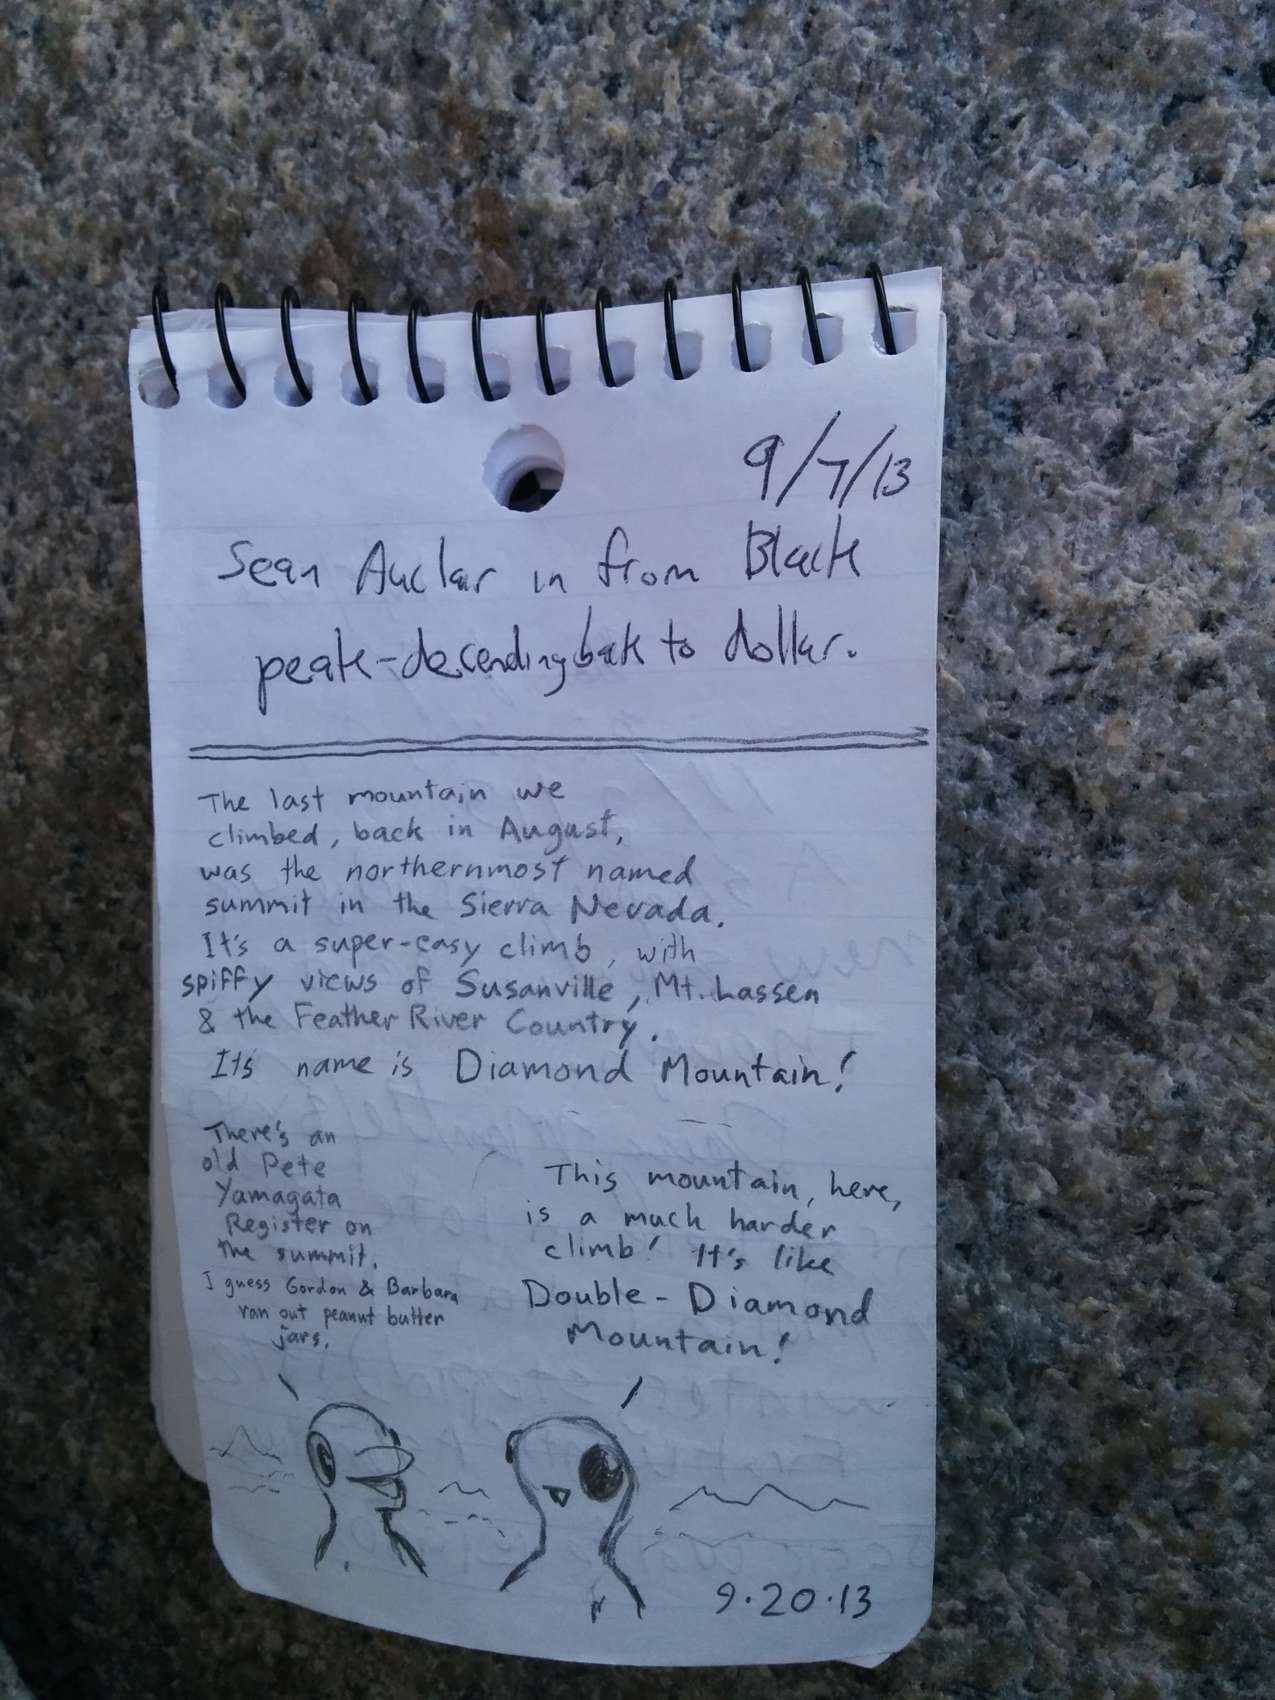 9/7/13
Sean Auclar in from Black
peak-descending back to dollar.
The last mountain we
climbed, back in August,
was the northernmost named
summit in the Sierra Nevada.
It's a super-easy climb, with
spiffy views of Susanville, Mt. Lassen
& the Feather River Country.
It's name is Diamond Mountain!
There's an
old Pete
Yamagata
Register on
the summit.
I guess Gordon & Barbara
ran out peanut butter
jars.
This mountain, here,
is a much harder
climb! It's like
Double-Diamond
Mountain!
9.20.13